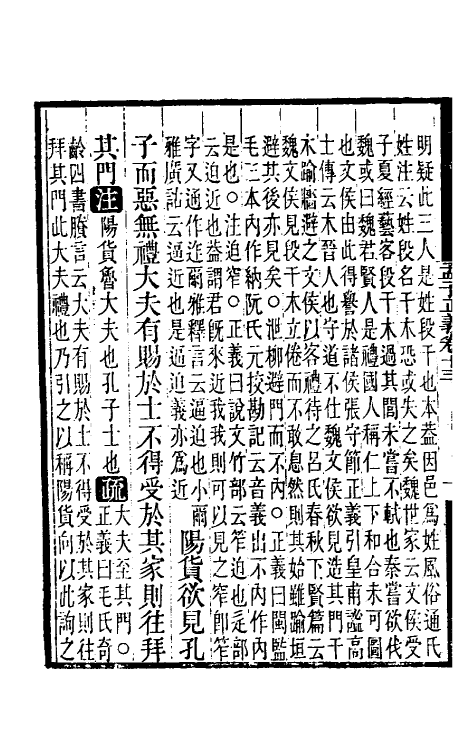 明疑此三人是姓段干也本蓋因邑爲姓風俗通氏
姓注云姓段名干木恐或失之矣魏世家云文侯受
子夏經藝客段干木過其閭未嘗不軾也秦嘗欲伐
魏或曰魏君賢人是禮國人稱仁上下和合未可圖
也文侯由此得譽於諸侯張守節正義引皇甫謐高
士傳云木晉人也守道不仕魏文侯欲見造其門干
木踰牆避之文侯以客禮待之呂氏春秋下賢篇云
魏文侯見段干木立倦而不敢息然則其始雖踰垣
避其後亦見矣○泄柳避門而不內○正義曰閩監
毛三本內作納阮氏元挍勘記云音義出不內作內
是也○注迫窄○正義曰說文竹部云笮迫也辵部
云迫近也蓋謂君旣來近我我則可以見之窄卽笮
字又通作迮爾雅釋言云逼迫也小爾
雅廣詁云逼近也是逼迫義亦爲近
陽貨欲見孔
子而惡無禮大夫有賜於士不得受於其家則往拜
其門注陽貨魯大夫也孔子士也疏
大夫至其門○
正義曰毛氏奇
齡四書賸言云大夫有賜於士不得受於其家則往
拜其門此大夫禮也乃引之以稱陽貨向以此詢之
孟子正義卷十三